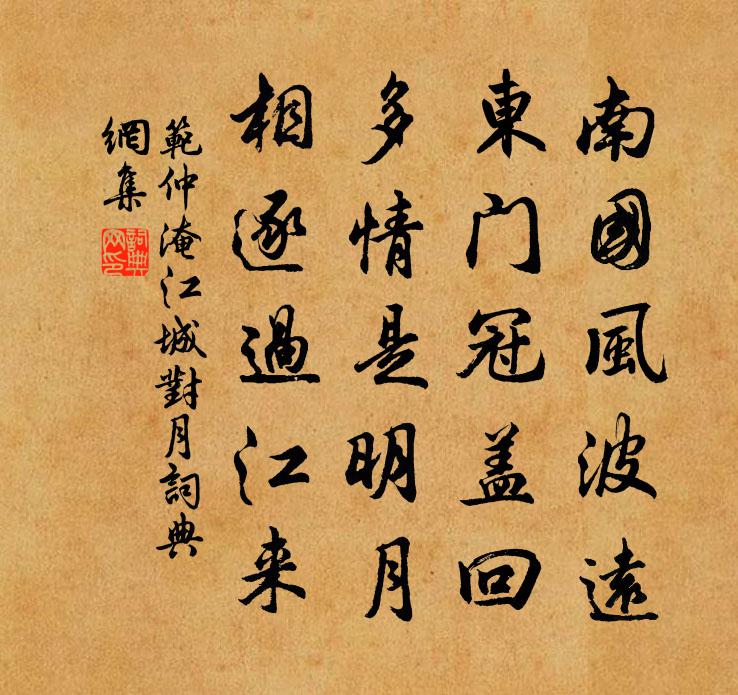 南國風波遠
東门冠盖回
多情是明月
相逐過江来
範仲淹江城對月詞典
網集
詞典網印